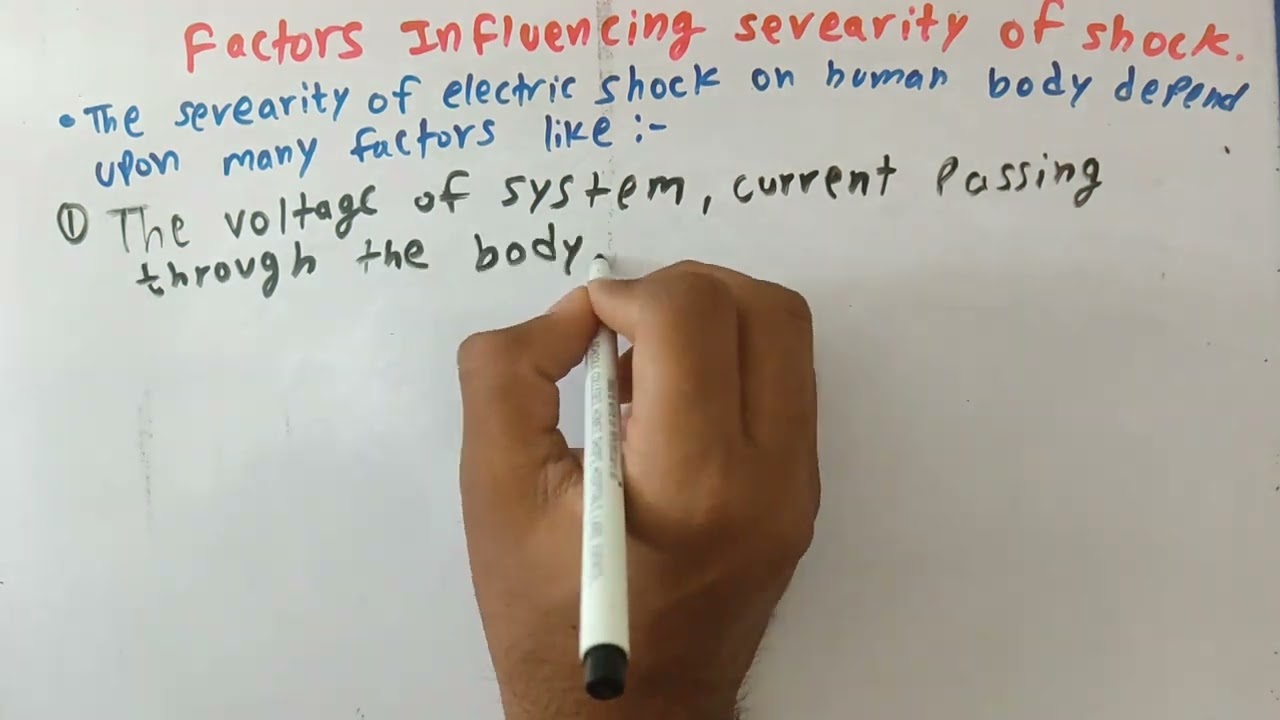 Factors Influencing sevearity of shock.
• The sevearity of electric shock on human body depend
upon many factors like :-
① The voltage of system, current passing
through the body.